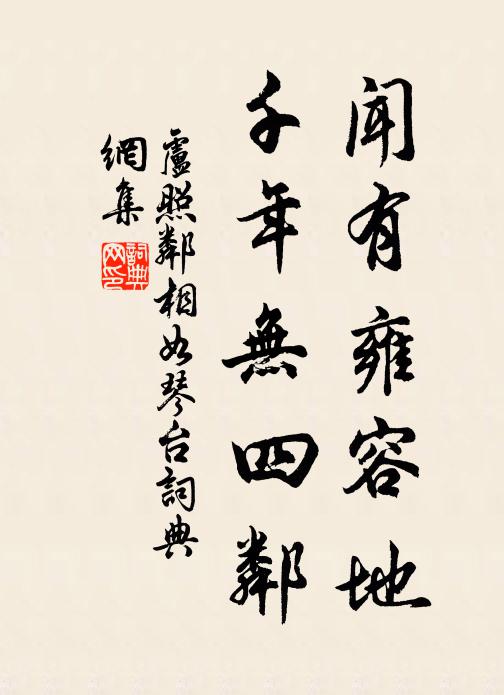 聞有雍容地
千年無四鄰
盧照鄰相如琴台詞典
網集
詞典網印